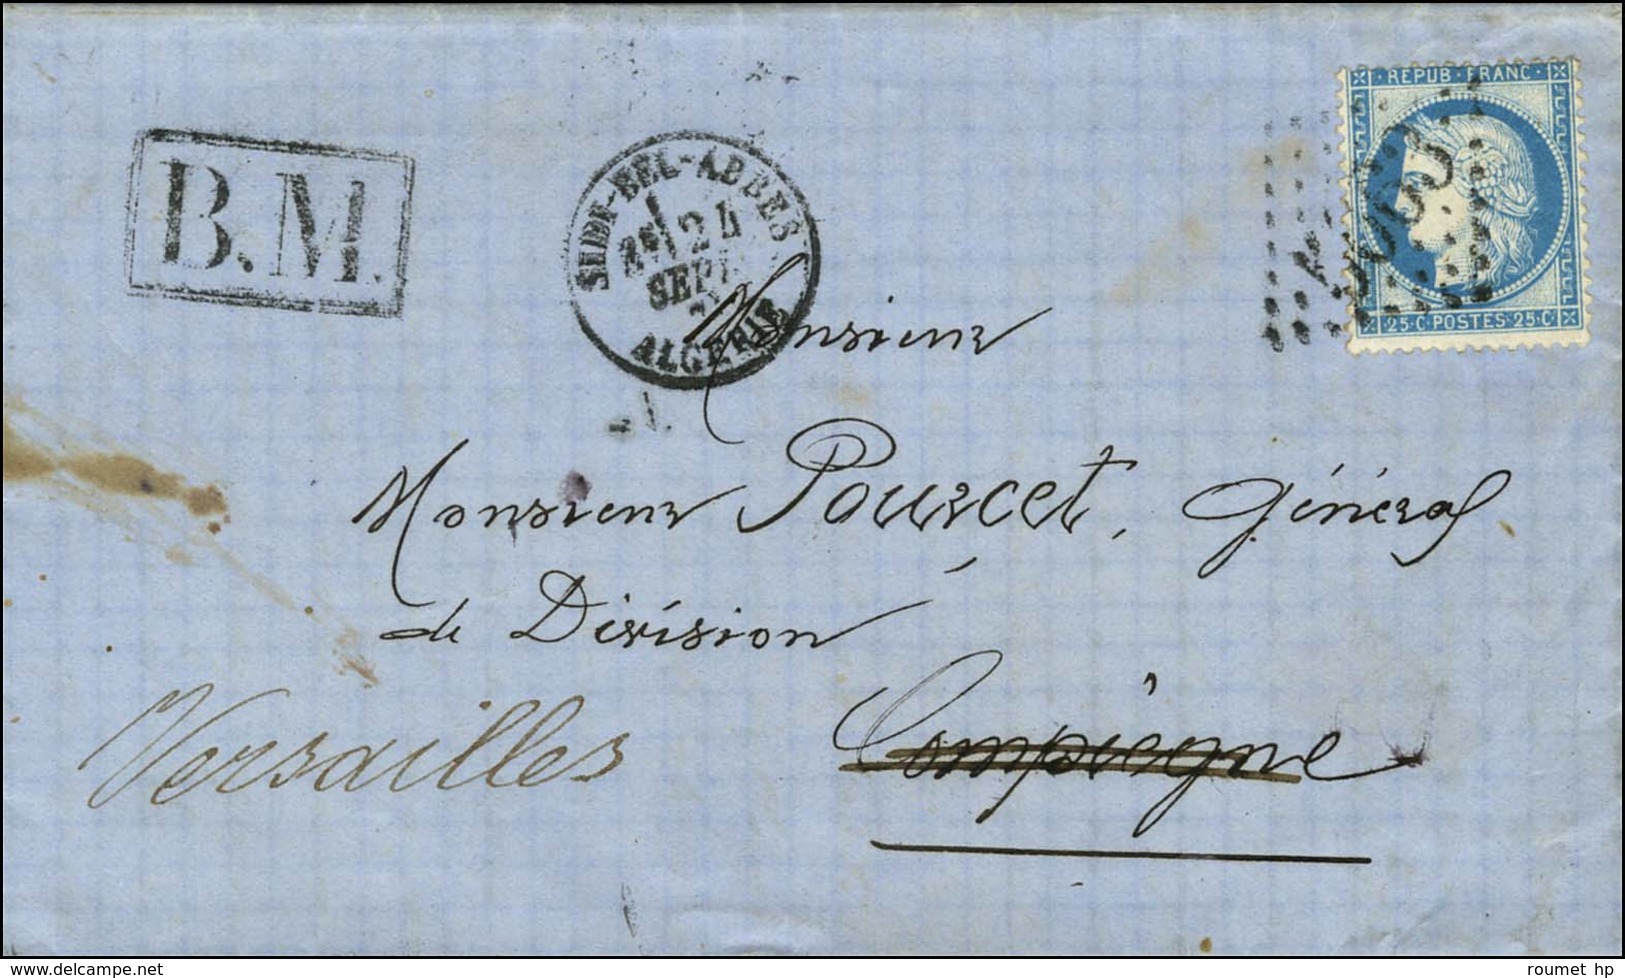 REPUB · FRANC
B.M.
SIDI-BEL-ABBES
24
SEPT.
ALGERIE
25·C·POSTES·25·C·
Monsieur
Monsieur Pourcet, Général
de Division
Versailles
Compiègne
www.delcampe.net
roumet hp